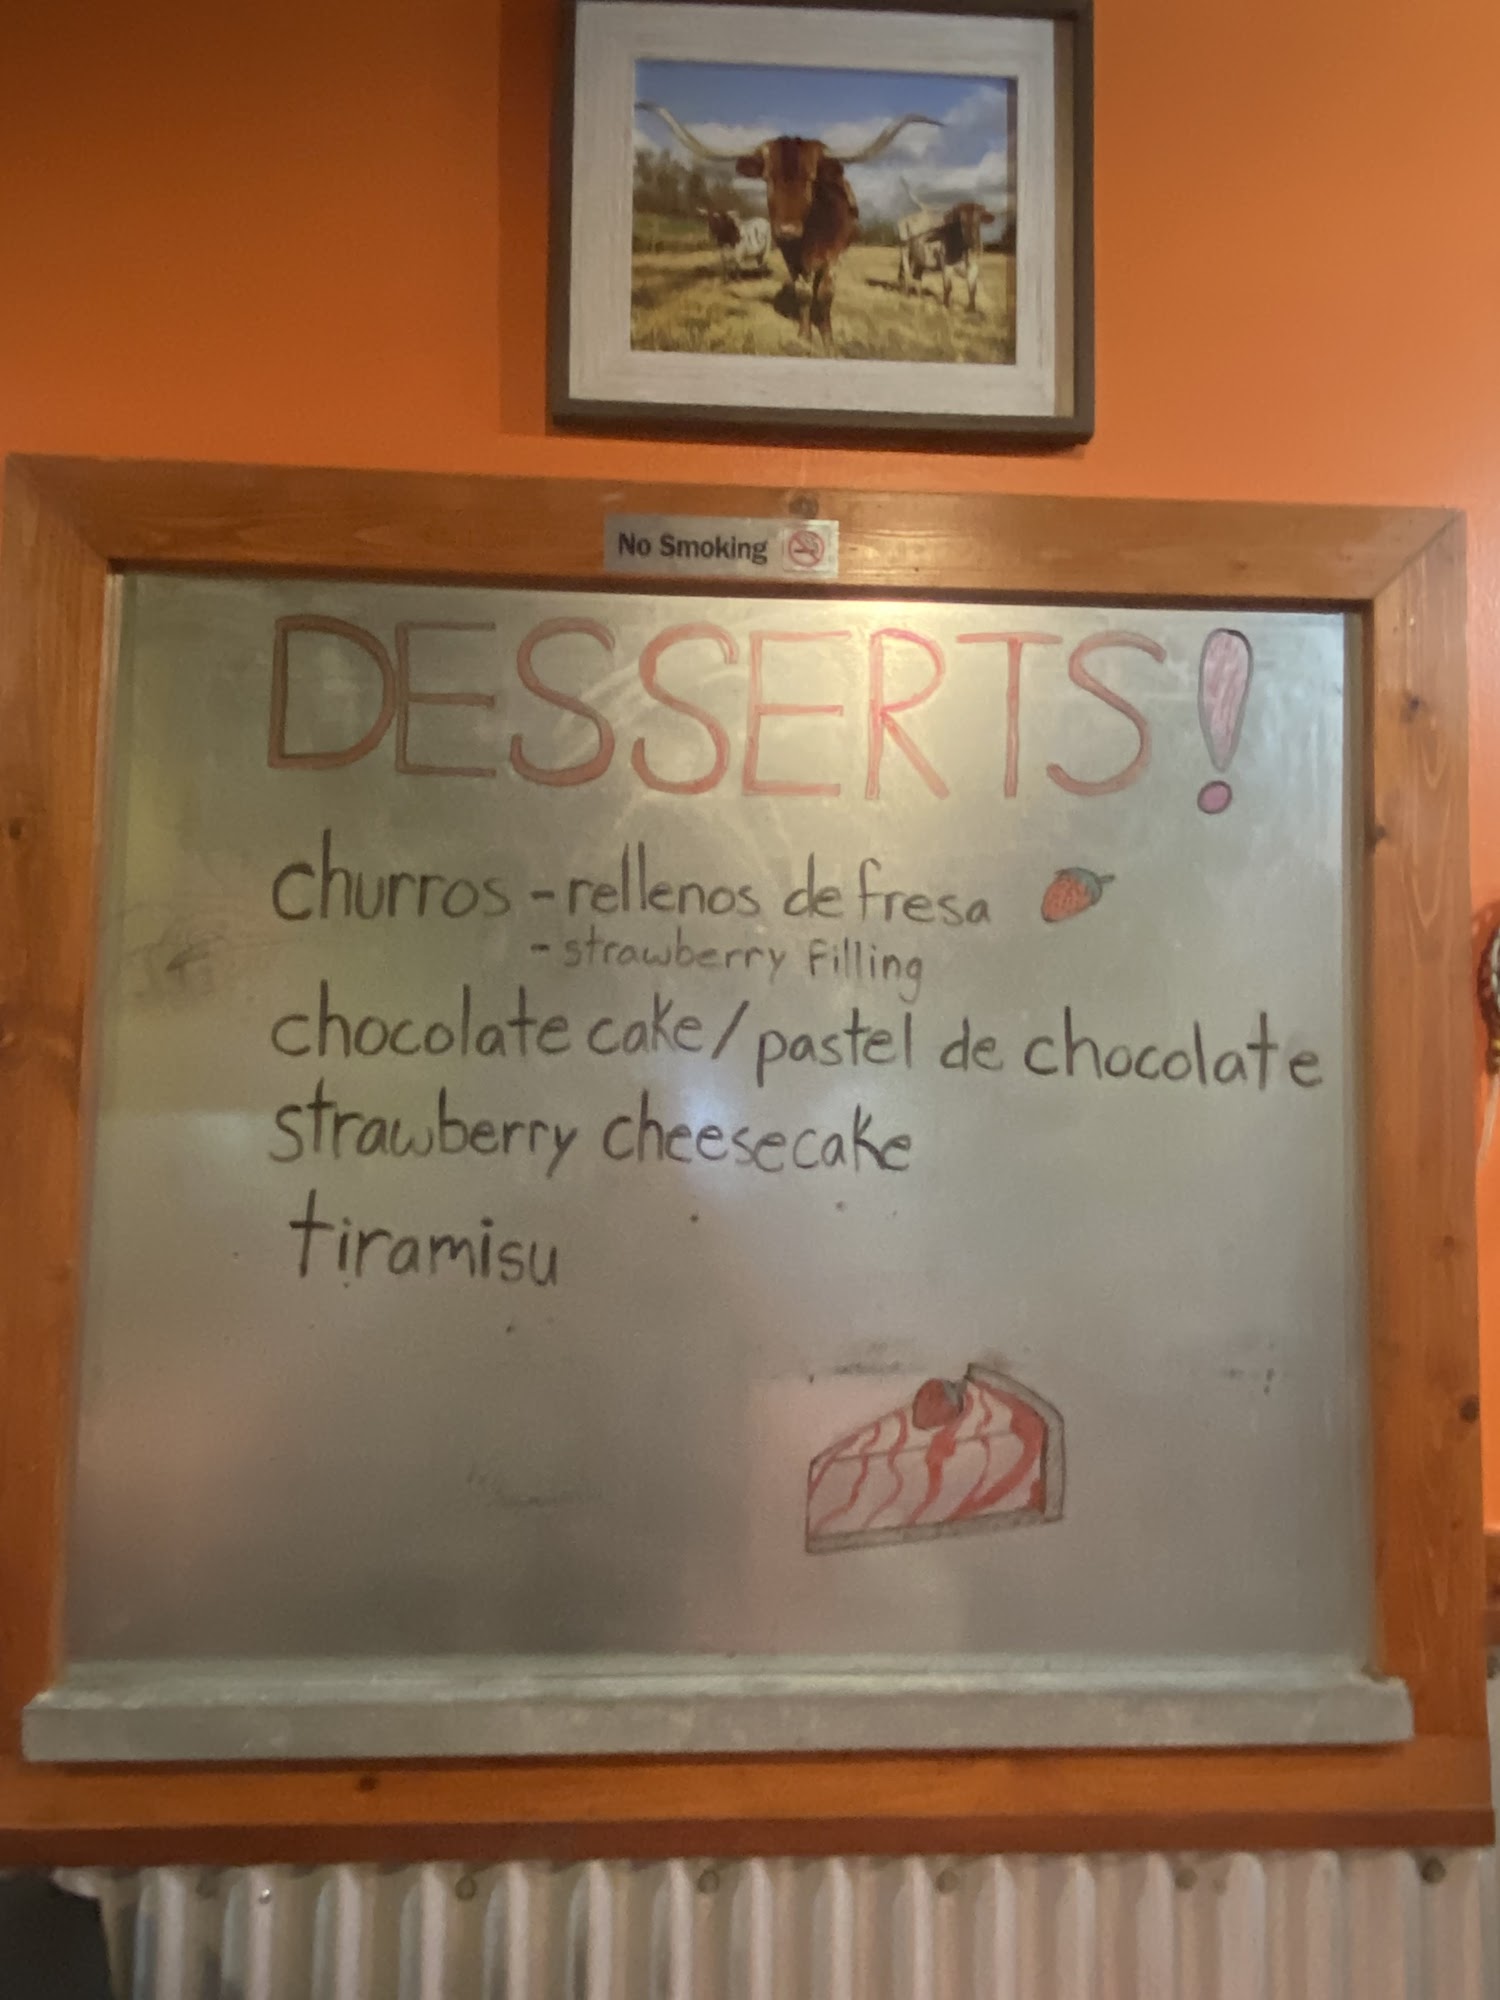 No Smoking
DESSERTS!
churros - rellenos de fresa
- strawberry filling
chocolate cake / pastel de chocolate
strawberry cheesecake
tiramisu